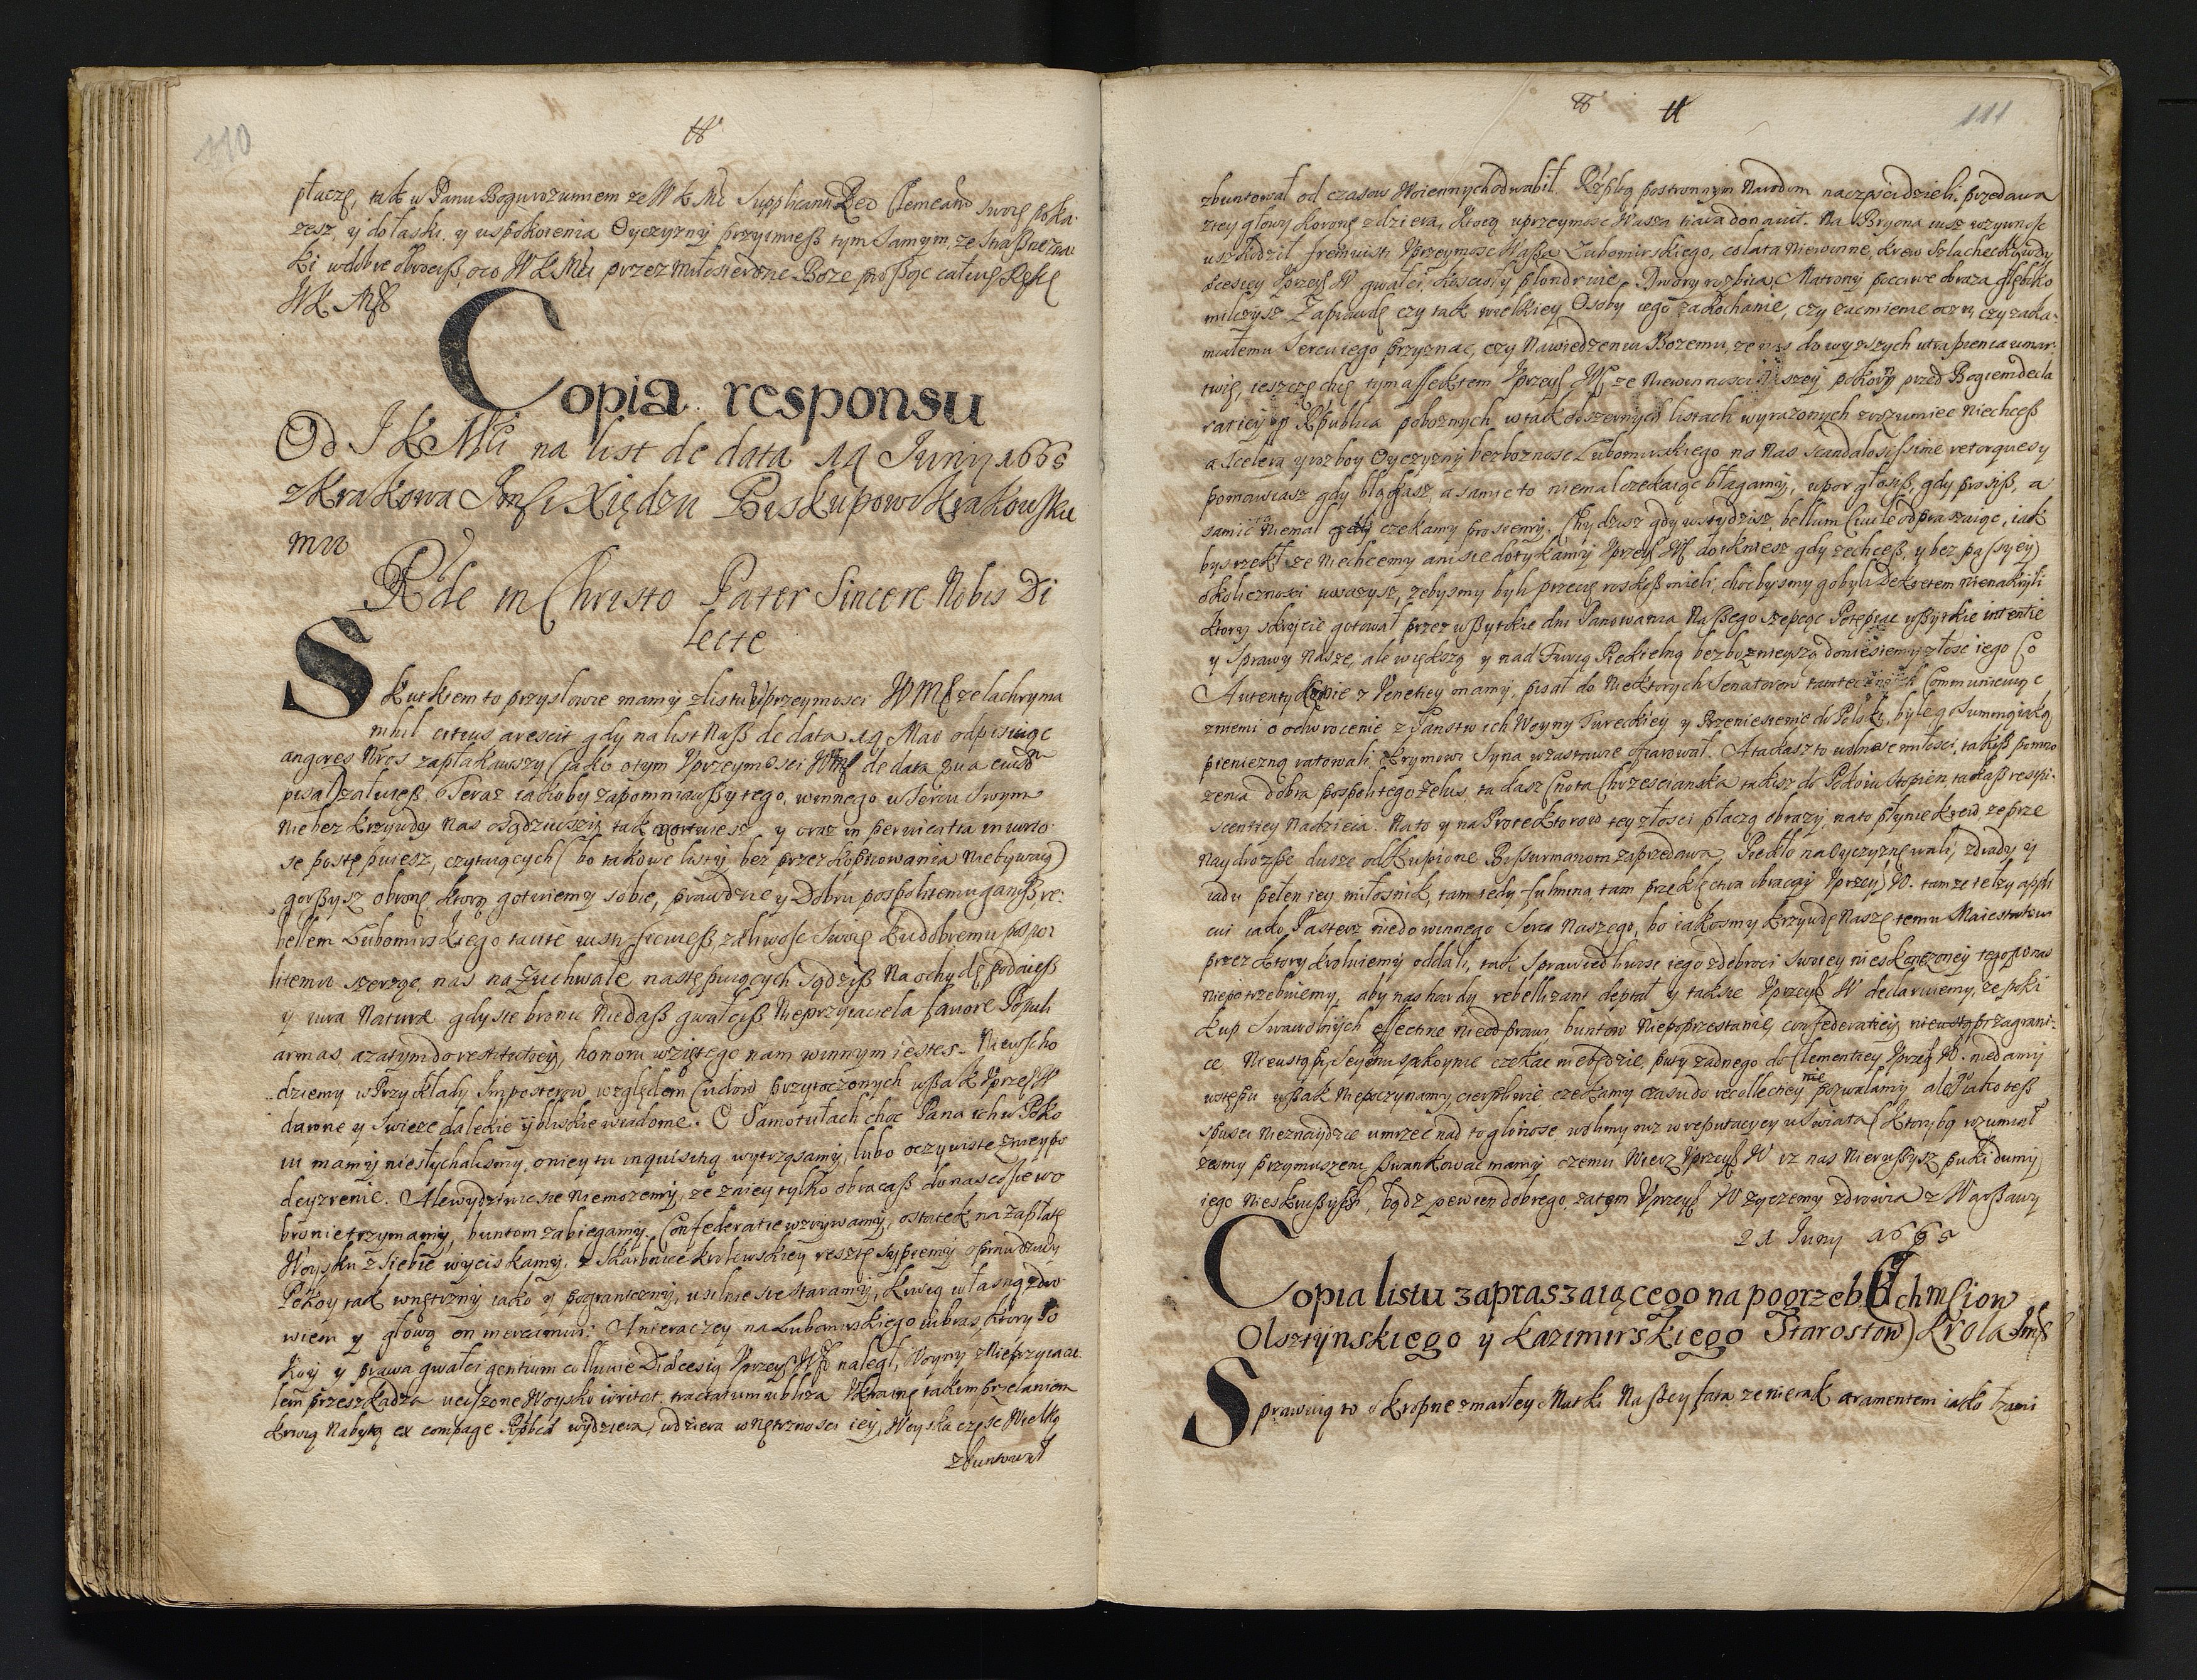 110
płaczę, tak w Panu Bogu rozumiem ze W K Mć Supplicanti Reo Clemeand swoię poka-
zesz, y do łaski y uspokoienia Oyczyzny przyimieß tym samym, ze straßne zna-
ki w dobre obrociß, o co W K Mći przez miłosierdzie Boze proßąc całuię Rękę
W K Mß
Copia responsu
Od J K Mći na list de data 14 Juny 1665
z Krakowa Jmści Xiędzu Biskupowi Krakowsku
mu
Rde in Christo Pater Sincere Nobis Di
lecte
Skutkiem to przysłowie mamy z listu Uprzeymosci WMć ze lachryma
nihil citius arescit gdy na list Naß de data 19 Maÿ odpisuiąc
angores Nros zapłakawszy (iako o tym Uprzeymosci Wmć de data eiusd
pisał) załuieß. Teraz iakoby zapomniawßy tego, winnego w sercu swym
nie bez krzywdy nas osądziwszy, tak y oraz in pernicitia
se postępuiesz, czytaiących (bo takowe listy bez przez kopiiowania nie bywaią)
gorßysz obronę ktorą gotuiemy sobie, prawdzie y Dobru pospolitemu ganiß re-
bellem Lubomirskiego tacite iustificuieß, zarliwosc swoię ku dobremu pospo
litemu szerząc, nas na zuchwałe następuiących sądziß na ochydę podaieß
y iura Naturæ gdy sie bronic nie daß gwałciß Nieprzyiaciela favore Populi
armas, a zatym do restitutiey, honoru wziętego nam winnym iestes. Niewscho
dziemy w Przykłady Impostorow względem Cudow przytoczonych wßak Uprzeß W
dawne y swieze dalekie y bliskie wiadome. O Samotułach choc Pana ich w Poko
iu mamy niesłychalismy, o niey tu inquisitią wytrząsamy, lubo oczywiste z niey po
deyzrenie. Ale wydziwic sie niemozemy, ze z niey tylko obracaß do nas cośiewo
bronie trzymamy, buntom zabiegamy, Confederatie wzrywamy, ostatek na zapłatę
Woysku z siebie wyciskamy, z Skarbnice krolewskiey resztę sypiemy o prawdziwy
Pokoy tak wnętrzny iako y pograniczny, usilnie sie staramy, krwią własną zdro
wiem y głową on mercamur. A nieraczey na Lubomirskiego wibrasz, ktory Po
koy y prawa gwałci gentium colluvie Diæcesią Uprzeß W naległ, Woyny z Nieprzyiacie
lem przeszkadza ucißone Woysko irritat, tractatum ubliza Ukrainę takim przelaniem
krwią nabytą ex compage Rzptæ wydziera, wdziera wnętrznosci iey, Woyska częsc Wielką
zbuntował
111
zbuntował od czasow Woiennych odwabił. Rzptą postronnym Narodom na częsci dzieli, przedawa
z iey głowy Koronę zdziera, ktorą uprzeymosc Wasza
uszkodził fremuisti Uprzeymosc Waßa Lubomirskiego, co lata niewinne, krew szlachecką w dy
æcesiey Uprzeß W gwałci, koscioły plondruie, Dwory rozbiia, Matrony poczciwe obraza głęboko
milczysz Zaprawdę czy tak wielkiey Osoby iego zakochanie, czy zacmienie oczu, czy zaka-
miałemu sercu iego przyznac, czy Nawiedzeniu Bozemu, ze nas do wyzszych utrapienia umar-
twię, ieszczę chcę tym affectem Uprzeß Wß ze niewinnosci naszey pokorny przed Bogiem decla
ratiey y Rpublica poboznych, w tak obszernych listach wyrazonych zrozumiec niechceß
a scelera y rozboy Oyczyzny bezboznosc Lubomirskiego na Nas scandalosissime retorquesy
pomawiasz gdy błagasz, a samic to niemal czekaiąc błagamy, upor głosiß, gdy prosiß, a
samic niemal czekamy prosiemy. Chydzisz gdy wstydzisz, bellum Civile odpraszaiąc, iak
bys rzekł ze niechcemy ani sie dotykamy Uprzeß Wß dotkniesz gdy zechceß, y bez passyey
okolicznosci uwazysz, zebysmy byli przecię roskoß mieli, chocbysmy go byli Dekretem nienakryli
ktory skrycie gotował przez wßytkie dni Panowania Naßego szepcąc Potępiac wßytkie intentie
y sprawy Nasze, ale większą y nad Furią Piekielną bezboznieyszą doniesiemy złosc iego Co
Autentykopie z Venetiey mamy, pisał do niektorych Senatorow tamtecznych Communicuiąc
z niemi o odwrocenie z Panstw ich Woyny Tureckiey y Przeniesienie do Polski, byle go summą iaką
pieniezną ratowali, Krymowi Syna w zastawie ofiarował. A takasz to wolnosc miłosci, takiß pomno
zenia dobra pospolitego zelus, takasz Cnota Chrzescianska takisz do Pokoiu stopien, takaß resipi-
scentiey Nadzieia. Na to y na Protektorow tey złosci płaczą obrazy, na to płynie krew, ze prze
naydrozße dusze odkupione Bisurmanom zaprzedawa, Piekło na oyczyznę wali, zdrady y
iadu pełen iey miłosnik, tam tedy fulmina tam przeklęctwa obracay Uprzeß W. tam ze te łzy appli
cui iako Pasterz niedo winnego serca Naszego, bo iakosmy krzywdę Naszę temu Maiestatowi
przez ktory kroluiemy oddali, tak sprawiedliwosc iego zdobroci swoiey nieskonczoney tego po nas
niepotrzebuiemy, aby nas hardy rebellizant deptał y tak sie Uprzeß W declaruiemy, ze poki
kup swawolnych effective nieodprawi, buntow niepoprzestanie, confederatiey nieustąpi zagrani-
ce Nieustąpi, Seymu spokoynie czekac niebędzie, pory zadnego do Clementiey Uprzeß W. niedamy
wstępu wßak niepoczynamy, cierpliwie czekamy czasu do recollectiey nie pozwalamy, ale iako teß
spusci nieznaydzie umrzec nad to gloriose, wolimy niz w reputacyey u swiata (ktoryby rozumiał
zesmy przymuszeni) szwankowac mamy czemu Wierz Uprzeß W iz nas nierußysz poki dumy
iego nieskrußyß, bądz pewien dobrego, zatym Uprzeß W zyczemy zdrowia z Warßawy
21 Juny 1665
Copia listu zapraszaiącego na pogrzeb Ichmsciow
Olsztynskiego y kazimirskiego Starostow) krola Jmß
Sprawuią to okropne zmarłey Matki Naßey fata, ze nie tak atramentem iako łzami